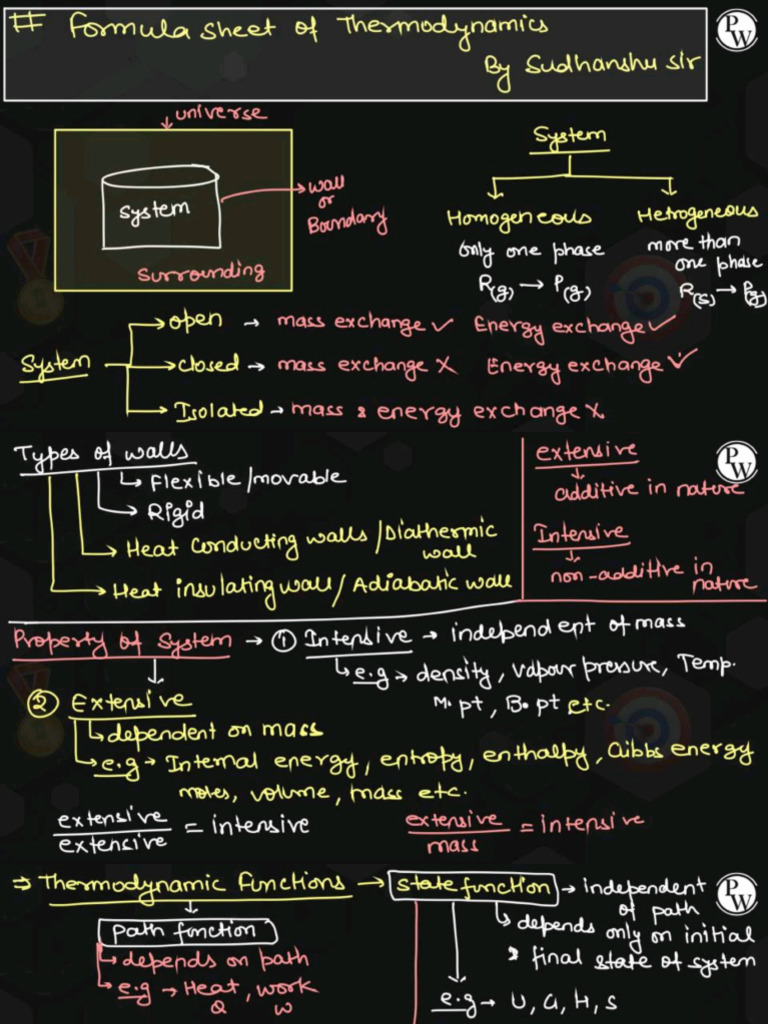 # Formula sheet of Thermodynamics
By Sudhanshu sir
PW
universe
System
wall
or
Boundary
Surrounding
System
Homogeneous
only one phase
R(g) → P(g)
Hetrogeneous
more than
one phase
R(s) → P(g)
System
open → mass exchange ✓ Energy exchange ✓
closed → mass exchange X Energy exchange ✓
Isolated → mass & energy exchange X
Types of walls
Flexible /movable
Rigid
Heat conducting walls /Diathermic
wall
Heat insulating wall / Adiabatic wall
extensive
additive in nature
Intensive
non-additive in
nature
PW
Property of System → ① Intensive → independent of mass
e.g → density, vapour pressure, Temp.
M.pt, B.pt etc.
② Extensive
dependent on mass
e.g → Internal energy, entropy, enthalpy, Gibbs energy
moles, volume, mass etc.
extensive/extensive = intensive
extensive/mass = intensive
⇒ Thermodynamic functions → state function → independent
of path
depends only on initial
& final state of system
e.g → U, G, H, S
path function
depends on path
e.g → Heat, work
Q W
PW